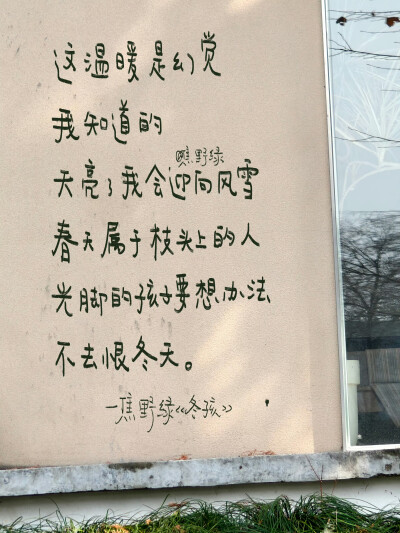 这温暖是幻觉
我知道的
焦野绿
天亮了我会迎向风雪
春天属于枝头上的人
光脚的孩子要想办法
不去恨冬天。
—焦野绿《冬孩》